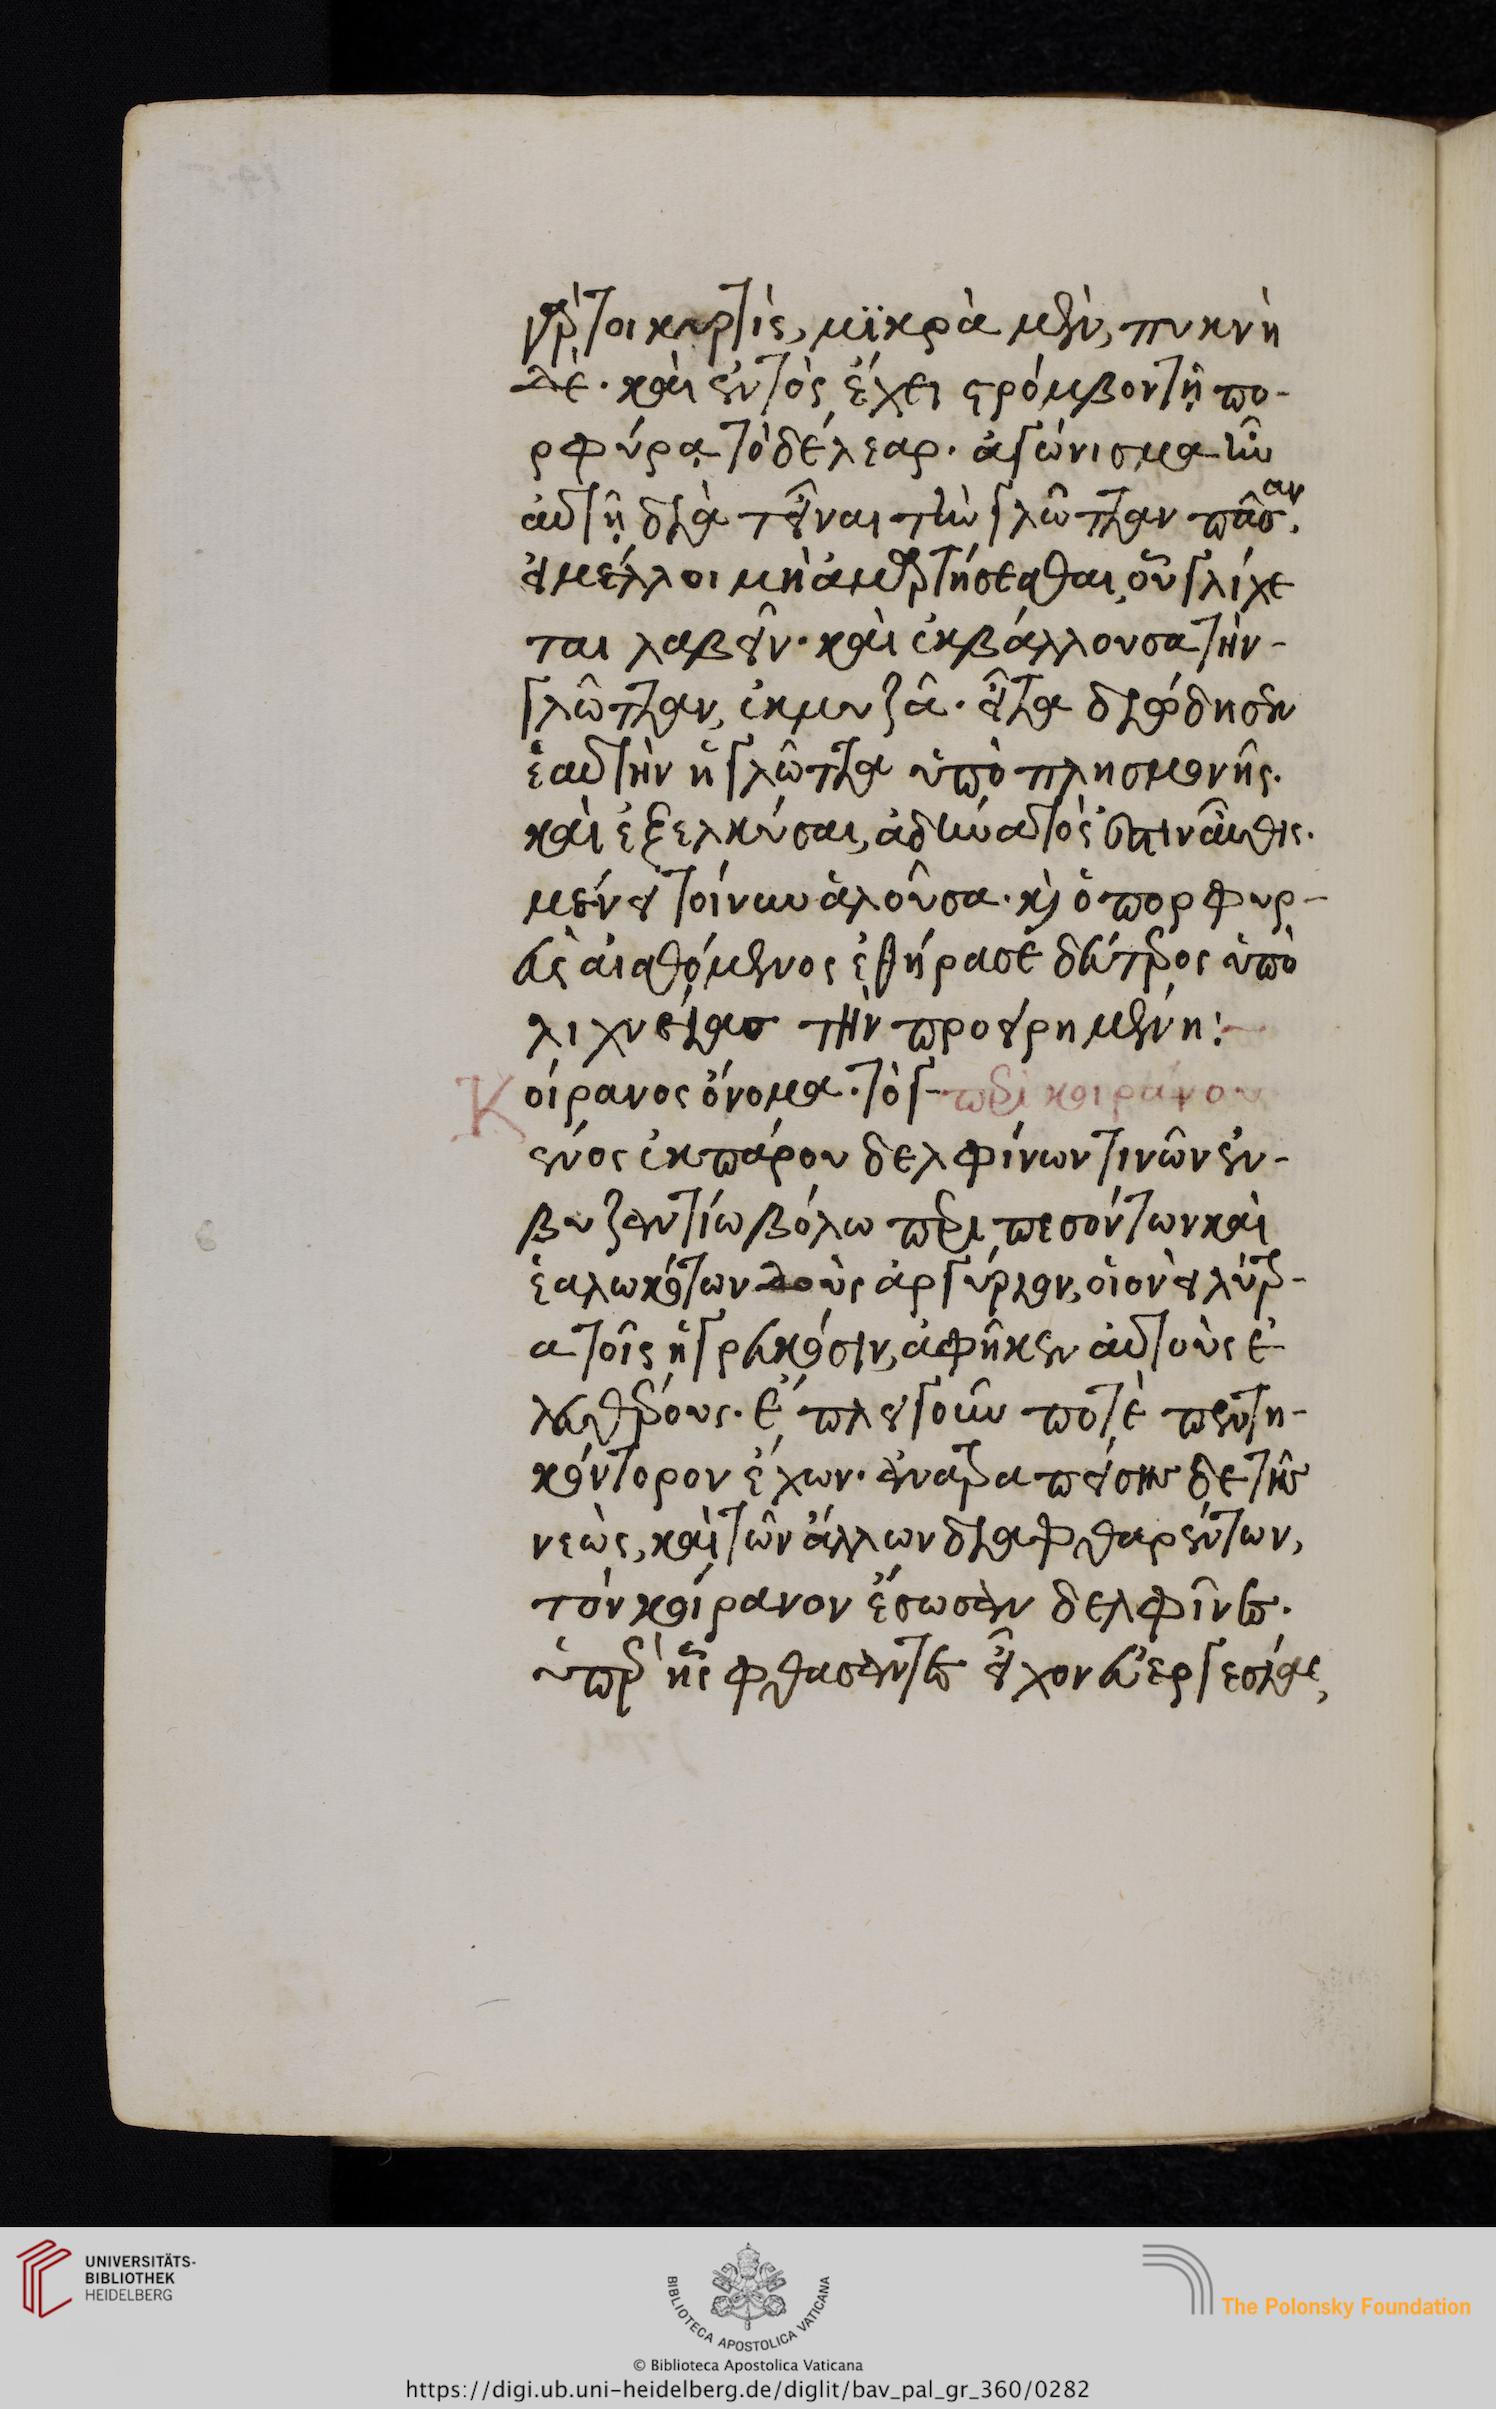 γάρ τοι κυρτὶς, μϊκρὰ μὲν, πυκνὴ
δέ. καὶ ἐντὸς ἔχει στρόμβον τῇ πο-
ρφύρᾳ τὸ δέλεαρ. ἀγώνισμα γοῦν
αὐτῇ διατεῖναι τὴν γλῶτταν πᾶσαν,
εἰ μέλλοι μὴ ἁμαρτήσεσθαι, οὗ γλίχε
ται λαβεῖν. καὶ ἐκβάλλουσα τὴν-
γλῶτταν, ἐκμυζᾶ. εἶτα διῴδησεν
ἑαυτὴν ἡ γλῶττα ὑπὸ πλησμονῆς.
καὶ ἐξελκύσαι, ἀδύνατός ἐστιν αὖθις.
μένει τοίνυν ἁλοῦσα. κ ὁ πορφυρ-
εὺς αἰσθόμενος ἐθήρασε δεύτερος ὑπὸ
λιχνείας τὴν προειρημένη:
Κοίρανος ὄνομα. τὸ γ- περὶ κοιράνου
ένος ἐκ πάρου δελφίνων τινῶν ἐν-
βυζαντίω βόλω περιπεσόντων καὶ
ἑαλωκότων δοὺς ἀργύριον, οἱονεὶ λύτρ-
α τοῖς ἠγρευκόσιν, ἀφῆκεν αὐτοὺς ἐ
λευθέρους. ἔπλει γοῦν ποτὲ πεντη-
κόντορον ἔχων. ἀνατραπείσης δὲ τῆς
νεὼς, καὶ τῶν ἄλλων διαφθαρέντων,
τὸν κοίρανον ἔσωσαν δελφῖνες.
ὑπὲρ ἧς φθάσαντες εἶχον εὐεργεσίας,
UNIVERSITÄTS-
BIBLIOTHEK
HEIDELBERG
BIBLIOTECA APOSTOLICA VATICANA
The Polonsky Foundation
© Biblioteca Apostolica Vaticana
https://digi.ub.uni-heidelberg.de/diglit/bav_pal_gr_360/0282